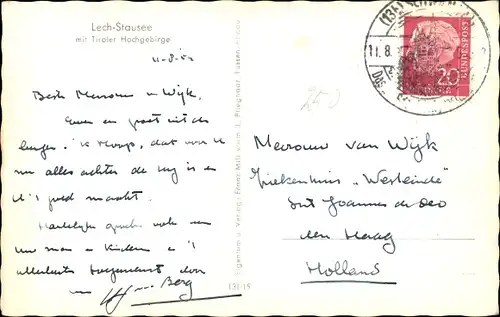 Lech-Stausee
mit Tiroler Hochgebirge
11-8-5
Beste Mevrouw v. Wijk,
Even een groet uit de
bergen. 'k Hoop, dat voor U
nu alles achter de rug is en
U 't goed maakt.
Hartelijke groeten ook aan
Uw man en Kinderen en 't
allerbeste toegewenst door
Berg
131-15
250
11.8.
DEUTSCHE BUNDESPOST
20
Mevrouw van Wijk
Ziekenhuis "Westeinde"
Sint Joannes de Deo
den Haag
Holland